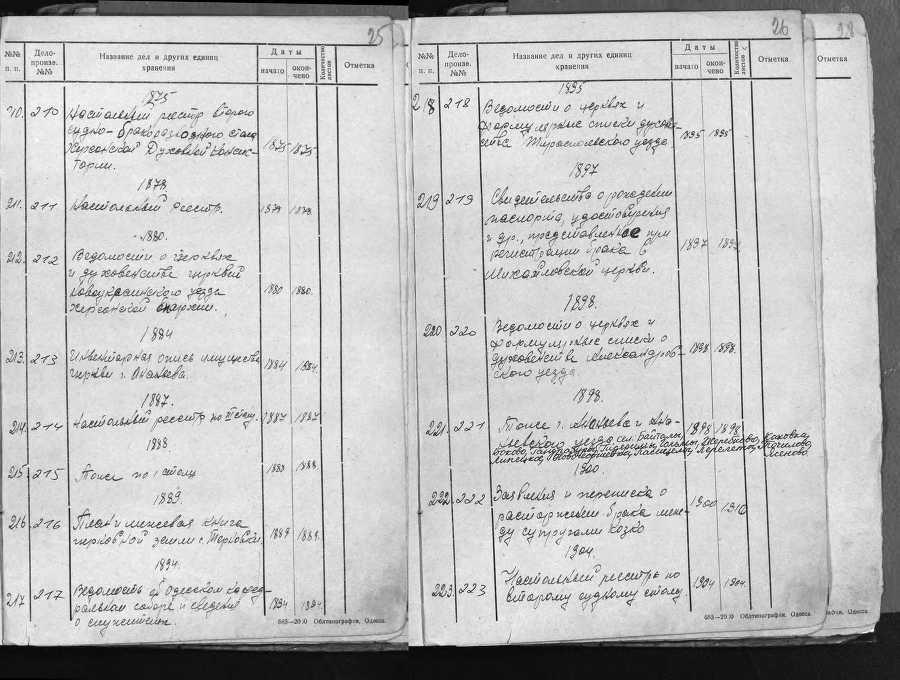 25
№№ п. п.
Дело- произв. №№
Название дел и других единиц хранения
Даты
начато
окон- чено
Количество листов
Отметка
1875
210. 210 Настольный реестр второго
судно-бракоразводного стола
Херсонской Духовной Консис-
тории. 1875 1875
1878
211. 211 Настольный реестр. 1878
1880.
212. 212 Ведомости о церквях
и духовенстве церквей
уезда
Херсонской епархии. 1880 1880.
1884
213. 213 Инвентарная опись имущества
церкви г. Ананьева. 1884 1884
1887.
214. 214 Настольный реестр по 1887 1887
1888.
215. 215 Тоже по столу 1888 1888.
1889
216. 216 План и межевая книга
церковной земли с. 1889 1889.
1894.
217 217 Ведомость об Одесском кафед-
ральном соборе и сведения
о служителях. 1894 1894
683—2000 Облтипография, Одесса
26
№№ п. п.
Дело- произв. №№
Название дел и других единиц хранения
Даты
начато
окон- чено
Количество листов
Отметка
1895
218 218 Ведомости о церквях и
формулярные списки духове-
нства Тираспольского уезда 1895 1895
1897
219 219 Свидетельства о рождении
паспорта, удостоверения
и др., представленные при
регистрации брака в
Михайловской церкви. 1897
1898.
220 220 Ведомости о церквях и
формулярные списки о
духовенстве Александров-
ского уезда 1898 1898.
1898.
221. 221 Тоже г. Ананьева и Ана-
ньевского уезда сел. Байталы, 1898 1898
1900.
222. 222 Заявления и переписка о
расторжении брака меж-
ду супругами Козко 1900 1910
1904.
223. 223 Настольный реестр по
второму судному столу 1904 1904.
683—2000 Облтипография, Одесса
28
Отметка
Одесса